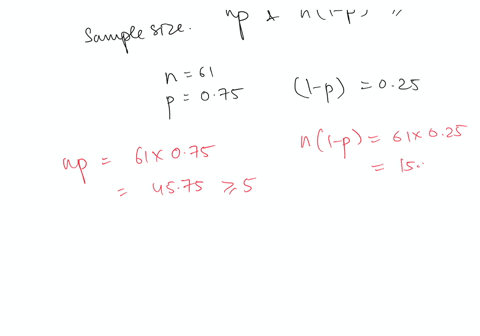 Sample size. np & n(1-p) ≥
n = 61
p = 0.75 (1-p) = 0.25
np = 61 x 0.75
= 45.75 ≥ 5
n(1-p) = 61 x 0.25
= 15.